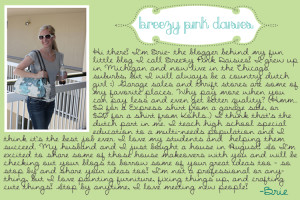 Breezy Pink Daisies
Hi there! I'm Brie- the blogger behind my fun
little blog I call Breezy Pink Daisies! I grew up
in Michigan and now live in the Chicago
suburbs, but I will always be a country dutch
girl :) Garage sales and thrift stores are some of
my favorite places. Why pay more when you
can pay less and even get better quality? Hmm
$2 for a Express shirt from a garage sale, or
$25 for a shirt from Kohls. I think that's the
dutch part in me. I teach high school special
education to a multi-needs population and I
think it's the best job ever. I love my students and helping them
succeed. My husband and I just bought a house in August! So I'm
excited to share some of those house makeovers with you and will be
checking out your blogs to borrow some of your great ideas too - so
stop by and share your ideas too! I'm not a professional at any-
thing, but I love painting furniture, fixing things up, and crafting
cute things! Stop by anytime, I love meeting new people!
-Brie